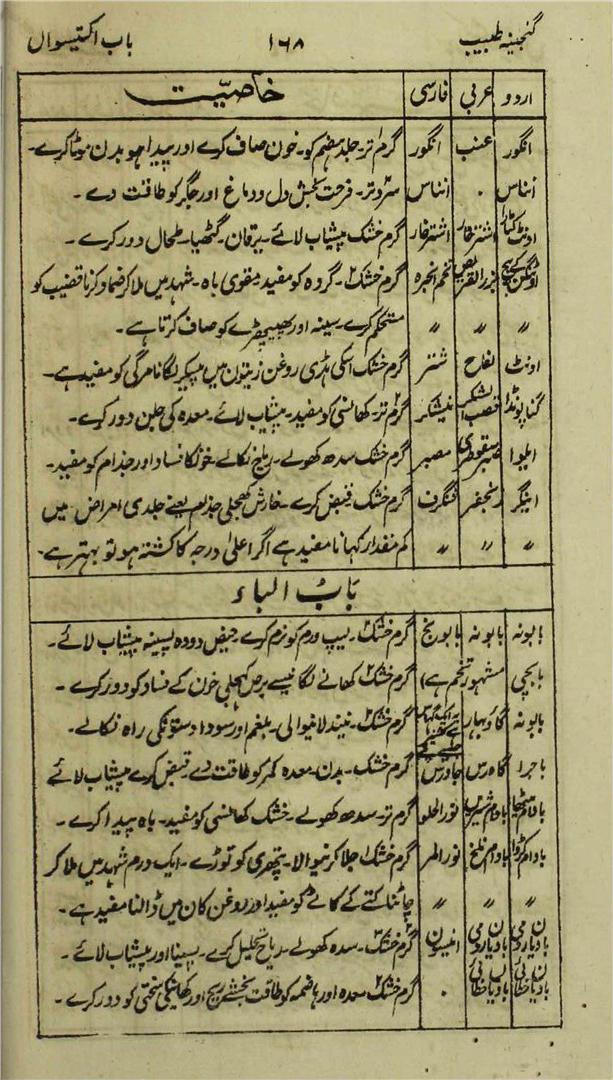 گنجینہ طبیب ۱۶۸ باب اکتیسواں
اردو عربی فارسی خاصیت
انگور عنب انگور گرم تر۔ جلد ہضم کو۔ خون صاف کرے اور پیدا ہو بدن موٹا کرے۔
انناس ۔ انناس سرد تر۔ فرحت بخش دل و دماغ اور جگر کو طاقت دے۔
اونٹ کٹارا اشترخار اشترخار گرم خشک پیشاب لائے۔ یرقان۔ گٹھیا۔ طحال دور کرے۔
تخم انجرہ گرم خشک ۲۔ گردہ کو مفید مقوی باہ۔ شہد میں ملا کر ضماد کرنا قضیب کو
〃 〃 〃 مستحکم کرے سینہ اور پھیپھڑے کو صاف کرتا ہے۔
اونٹ شتر گرم خشک اسکی ہڈی روغن زیتون میں پیکر لگانا مرگی کو مفید ہے۔
گنا پونڈا قصب السکر نیشکر گرم تر۔ کھانسی کو مفید۔ پیشاب لائے۔ معدہ کی جلن دور کرے۔
ایلوا صبر سقوطری مصبر گرم خشک سدہ کھولے۔ ریاح نکالے۔ خونکا فساد اور جذام کو مفید۔
اینگر زنجفر شنگرف گرم خشک قبض کرے۔ خارش کھجلی جذام یعنے جلدی امراض میں
〃 〃 〃 کم مقدار کہانا مفید ہے اگر اعلیٰ درجہ کا کشتہ ہو تو بہتر ہے۔
بابُ الباء
بابونہ بابونہ بابونج گرم خشک ۲۔ لیپ ورم کو نرم کرے۔ حیض دودہ پسینہ پیشاب لائے۔
بابچی (مشہور تخم ہے) گرم خشک ۲ کھانے لگانیسے برص کھجلی خون کے فساد کو دور کرے۔
بابونہ گاؤ بہار گرم خشک ۲۔ نیند لانیوالی۔ بلغم اور سودا دستونکی راہ نکالے۔
باجرا گاورس جاورس گرم خشک۔ بدن۔ معدہ کمر کو طاقت دے۔ قبض کرے پیشاب لائے
بادام میٹھا بادام شیریں نور الحلو گرم تر۔ سدہ کھولے۔ خشک کھانسی کو مفید۔ باہ پیدا کرے۔
بادام کڑوا بادام تلخ نور المر گرم خشک ۲ جلا کرنیوالا۔ پتھری کو توڑے۔ ایک درم شہد میں ملا کر
〃 〃 〃 چاٹنا کتے کے کاٹے کو مفید اور روغن کان میں ڈالنا مفید ہے۔
بادیان رومی بادیان رومی انیسون گرم خشک ۲۔ سدہ کھولے۔ ریاح تحلیل کرے۔ پسینا اور پیشاب لائے۔
بادیان خطائی بادیان خطائی ۔ گرم خشک ۲ معدہ اور ہاضمہ کو طاقت بخشے ریح اور کھانسیکی سختی کو دور کرے۔